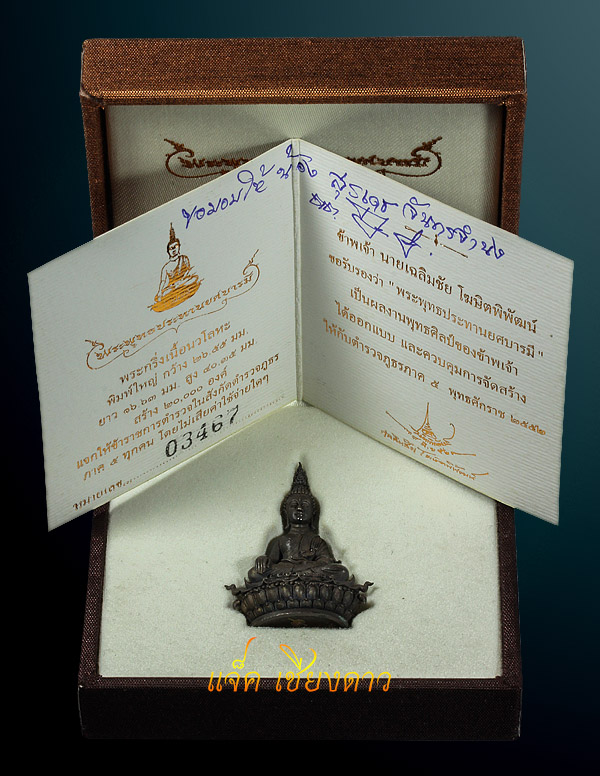 ขอมอบให้ น้อง สุรเดช
พระพุทธประทานยศบารมี
พระกริ่งเนื้อนวโลหะ
พิมพ์ใหญ่ กว้าง ๒๖.๕๕ มม.
ยาว ๑๖.๖๓ มม. สูง ๔๐.๓๕ มม.
สร้าง ๒๐,๐๐๐ องค์
แจกให้ข้าราชการตำรวจในสังกัดตำรวจภูธร
ภาค ๕ ทุกคน โดยไม่เสียค่าใช้จ่ายใดๆ
หมายเลข 03467
ข้าพเจ้า นายเฉลิมชัย โฆษิตพิพัฒน์
ขอรับรองว่า " พระพุทธประทานยศบารมี "
เป็นผลงานพุทธศิลป์ของข้าพเจ้า
ได้ออกแบบ และควบคุมการจัดสร้าง
ให้กับตำรวจภูธรภาค ๕ พุทธศักราช ๒๕๕๒
แจ็ค เชียงดาว